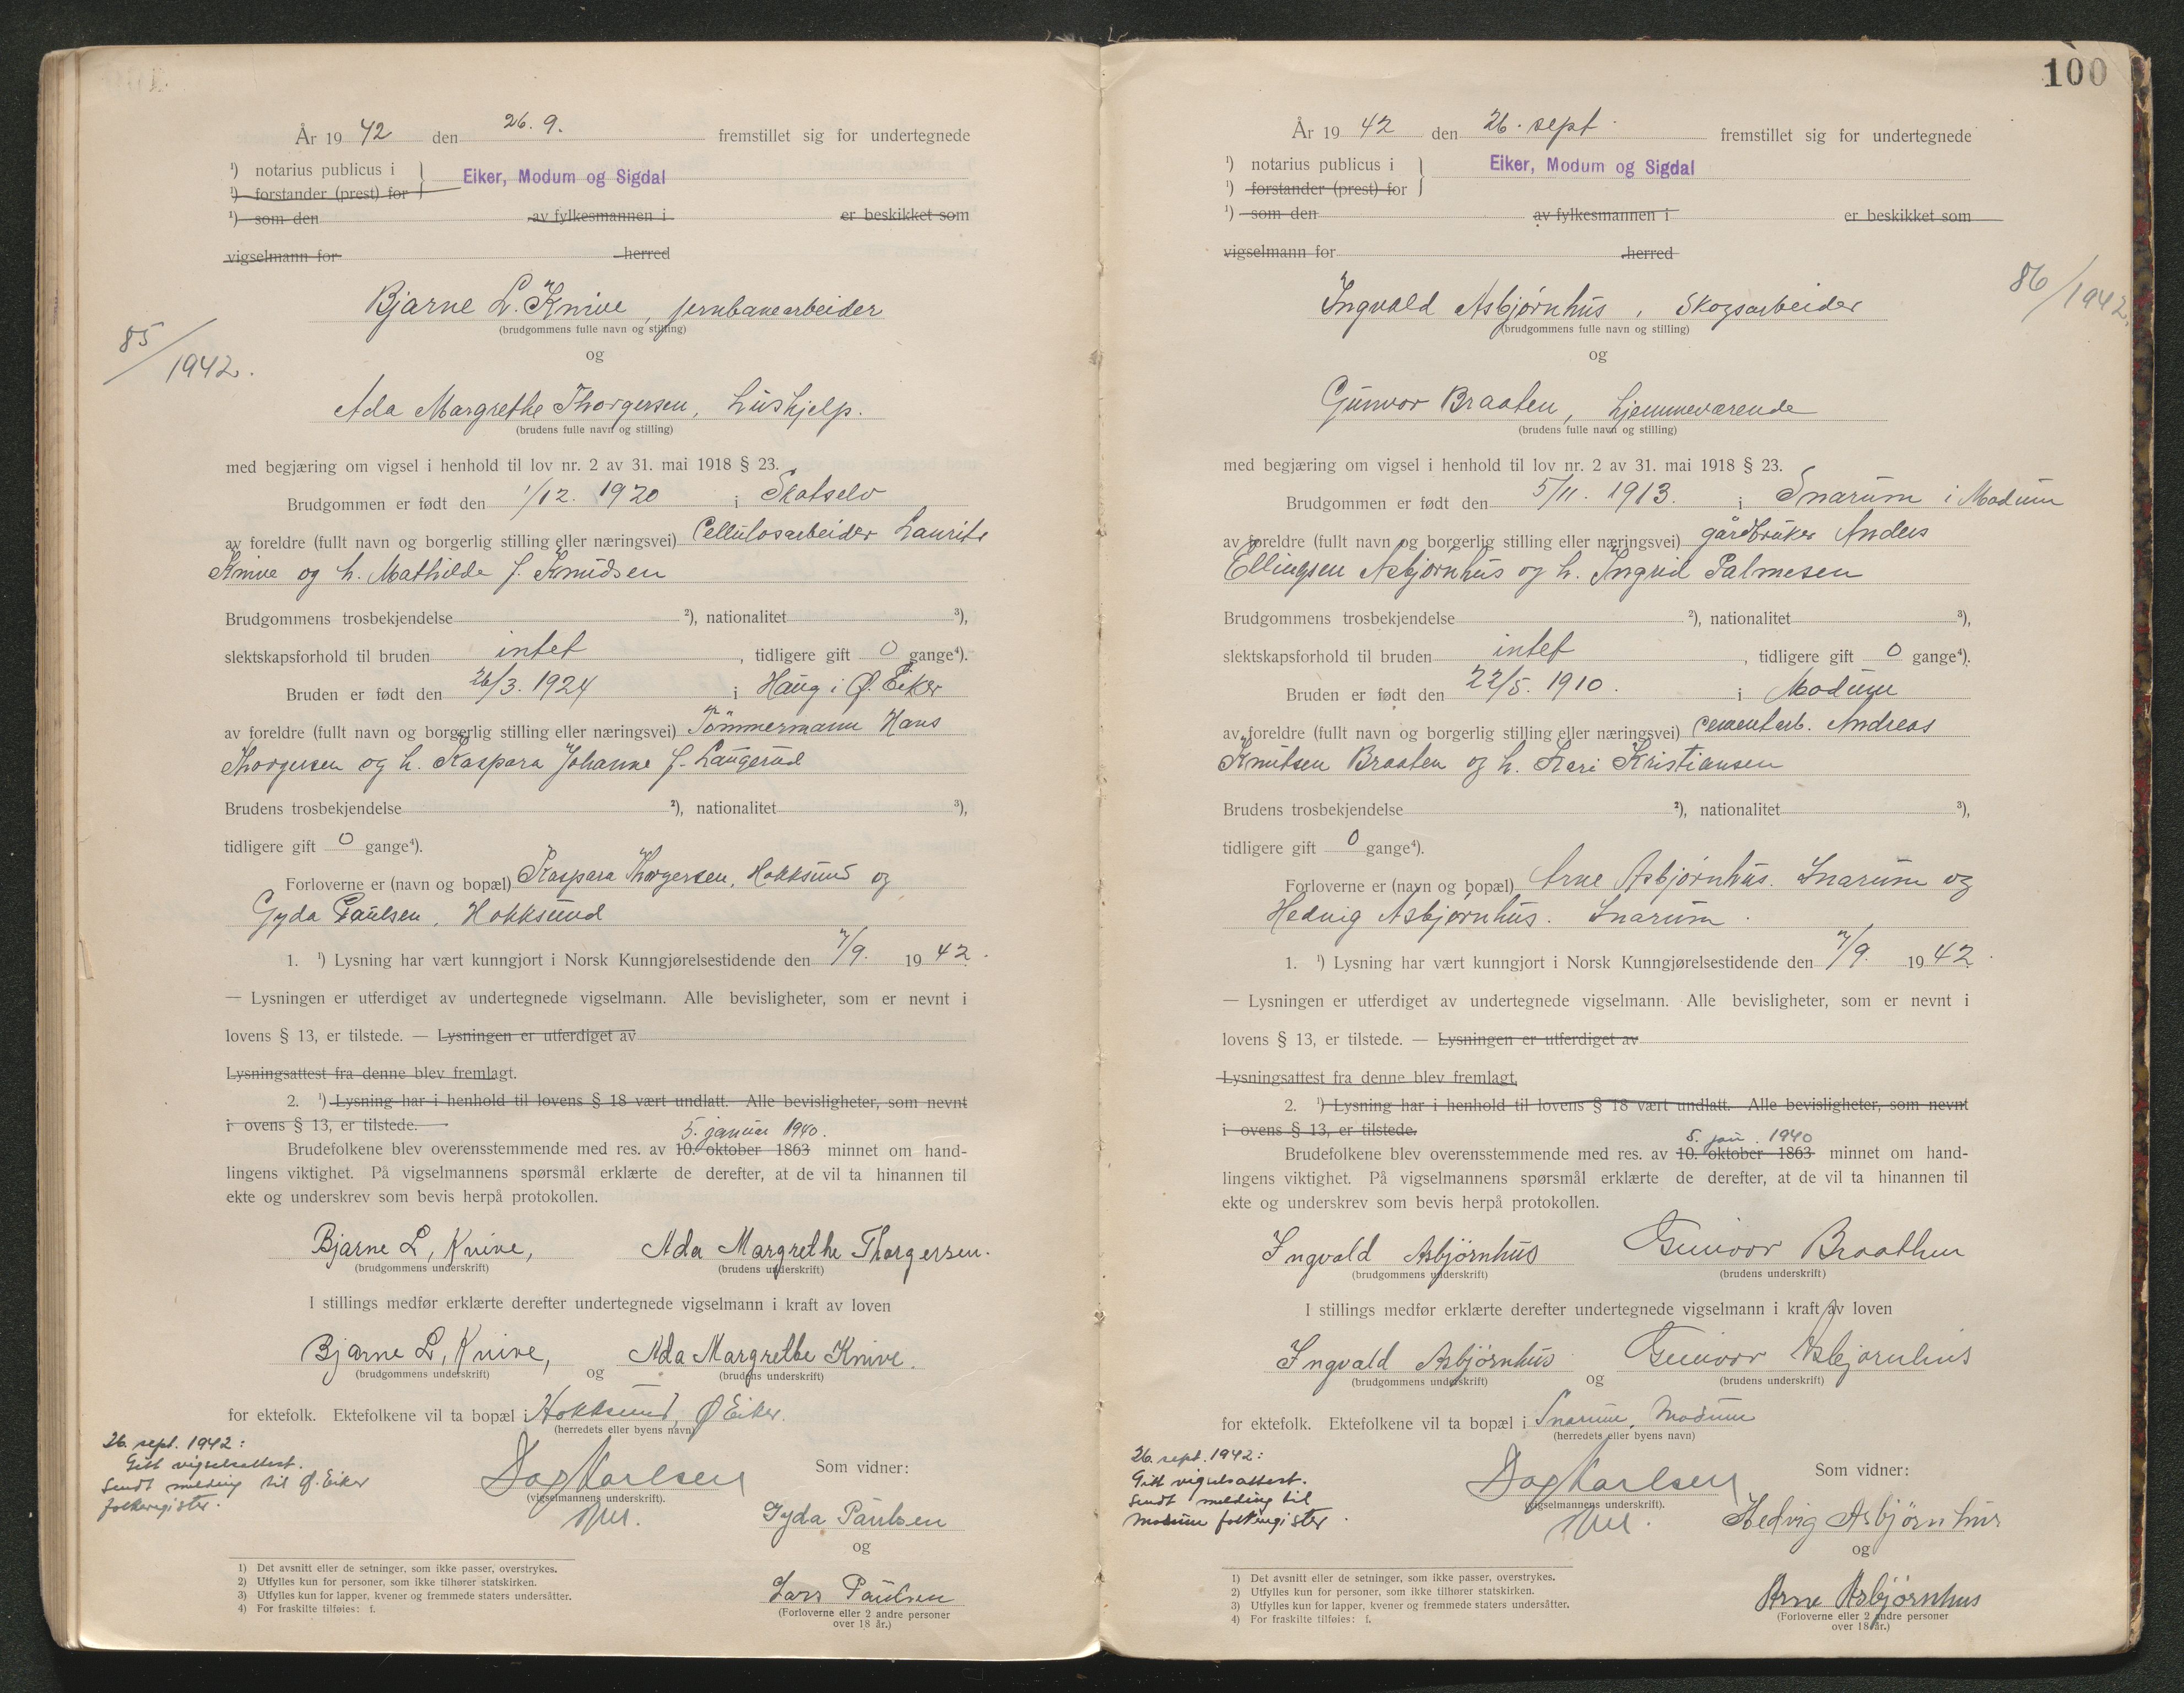 År 19 42 den 26. 9. fremstillet sig for undertegnede
¹) notarius publicus i } Eiker, Modum og Sigdal
¹) forstander (prest) for
¹) som den av fylkesmannen i er beskikket som
vigselmann for herred
Bjarne L. Knive, jernbanearbeider
(brudgommens fulle navn og stilling)
85/1942.
og
Ada Margrethe Thorgersen, hushjelp.
(brudens fulle navn og stilling)
med begjæring om vigsel i henhold til lov nr. 2 av 31. mai 1918 § 23.
Brudgommen er født den 1/12. 1920 i Skotselv
av foreldre (fullt navn og borgerlig stilling eller næringsvei) Cellulosarbeider Laurits
Knive og h. Mathilde f. Knudsen
Brudgommens trosbekjendelse ²), nationalitet ³),
slektskapsforhold til bruden intet, tidligere gift 0 gange⁴).
Bruden er født den 26/3. 1924 i Haug i Ø. Eiker
av foreldre (fullt navn og borgerlig stilling eller næringsvei) Tömmermann Hans
Thorgersen og h. Kaspara Johanne f. Laugerud
Brudens trosbekjendelse ²), nationalitet ³),
tidligere gift 0 gange⁴).
Forloverne er (navn og bopæl) Kaspara Thorgersen, Hokksund og
Gyda Paulsen, Hokksund
1. ¹) Lysning har vært kunngjort i Norsk Kunngjørelsestidende den 7/9. 19 42.
— Lysningen er utferdiget av undertegnede vigselmann. Alle bevisligheter, som er nevnt i
lovens § 13, er tilstede. — Lysningen er utferdiget av
Lysningsattest fra denne blev fremlagt.
2. ¹) Lysning har i henhold til lovens § 18 vært undlatt. Alle bevisligheter, som nevnt
i ovens § 13, er tilstede.
5. januar 1940.
Brudefolkene blev overensstemmende med res. av 10. oktober 1863 minnet om hand-
lingens viktighet. På vigselmannens spørsmål erklærte de derefter, at de vil ta hinannen til
ekte og underskrev som bevis herpå protokollen.
Bjarne L, Knive, Ada Margrethe Thorgersen.
(brudgommens underskrift) (brudens underskrift)
I stillings medfør erklærte derefter undertegnede vigselmann i kraft av loven
Bjarne L, Knive, og Ada Margrethe Knive.
(brudgommens underskrift) (brudens underskrift)
for ektefolk. Ektefolkene vil ta bopæl i Hokksund, Ø Eiker.
(herredets eller byens navn)
26. sept. 1942:
Gitt vigselsattest.
Sendt melding til Ø. Eiker
folkeregister.
Dag Karlsen
(vigselmannens underskrift).
Som vidner:
Gyda Paulsen
og
Lars Paulsen
(Forloverne eller 2 andre personer
over 18 år.)
1) Det avsnitt eller de setninger, som ikke passer, overstrykes.
2) Utfylles kun for personer, som ikke tilhører statskirken.
3) Utfylles kun for lapper, kvener og fremmede staters undersåtter.
4) For fraskilte tilføies: f.
100
År 19 42 den 26. sept. fremstillet sig for undertegnede
¹) notarius publicus i } Eiker, Modum og Sigdal
¹) forstander (prest) for
¹) som den av fylkesmannen i er beskikket som
vigselmann for herred
86/1942.
Ingvald Asbjørnhus, Skogsarbeider
(brudgommens fulle navn og stilling)
og
Gunvor Braaten, hjemmeværende
(brudens fulle navn og stilling)
med begjæring om vigsel i henhold til lov nr. 2 av 31. mai 1918 § 23.
Brudgommen er født den 5/11. 1913. i Snarum i Modum
av foreldre (fullt navn og borgerlig stilling eller næringsvei) gårdbruker Anders
Ellingsen Asbjørnhus og h. Ingrid Palmesen
Brudgommens trosbekjendelse ²), nationalitet ³),
slektskapsforhold til bruden intet, tidligere gift 0 gange⁴).
Bruden er født den 22/5. 1910. i Modum
av foreldre (fullt navn og borgerlig stilling eller næringsvei) cementarb. Andreas
Knutsen Braaten og h. Kari Kristiansen
Brudens trosbekjendelse ²), nationalitet ³),
tidligere gift 0 gange⁴).
Forloverne er (navn og bopæl) Arne Asbjørnhus. Snarum og
Hedvig Asbjørnhus. Snarum.
1. ¹) Lysning har vært kunngjort i Norsk Kunngjørelsestidende den 7/9. 19 42.
— Lysningen er utferdiget av undertegnede vigselmann. Alle bevisligheter, som er nevnt i
lovens § 13, er tilstede. — Lysningen er utferdiget av
Lysningsattest fra denne blev fremlagt.
2. ¹) Lysning har i henhold til lovens § 18 vært undlatt. Alle bevisligheter, som nevnt
i ovens § 13, er tilstede.
5. jan. 1940
Brudefolkene blev overensstemmende med res. av 10. oktober 1863 minnet om hand-
lingens viktighet. På vigselmannens spørsmål erklærte de derefter, at de vil ta hinannen til
ekte og underskrev som bevis herpå protokollen.
Ingvald Asbjørnhus Gunvor Braathen
(brudgommens underskrift) (brudens underskrift)
I stillings medfør erklærte derefter undertegnede vigselmann i kraft av loven
Ingvald Asbjørnhus og Gunvor Asbjørnhus
(brudgommens underskrift) (brudens underskrift)
for ektefolk. Ektefolkene vil ta bopæl i Snarum, Modum
(herredets eller byens navn)
26. sept. 1942:
Gitt vigselsattest.
Sendt melding til
Modum folkeregister.
Dag Karlsen
(vigselmannens underskrift).
Som vidner:
Hedvig Asbjørnhus
og
Arne Asbjørnhus
(Forloverne eller 2 andre personer
over 18 år.)
1) Det avsnitt eller de setninger, som ikke passer, overstrykes.
2) Utfylles kun for personer, som ikke tilhører statskirken.
3) Utfylles kun for lapper, kvener og fremmede staters undersåtter.
4) For fraskilte tilføies: f.